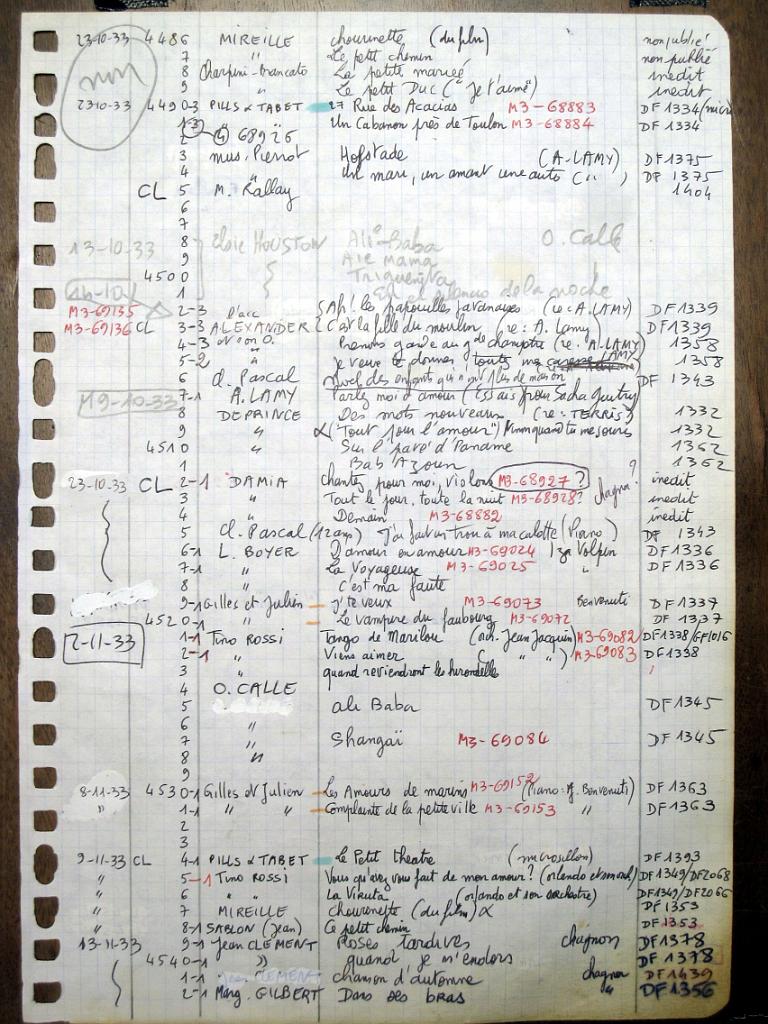 23-10-33 4486 MIREILLE chourinette (du film) non publié
7 " Le petit chemin non publié
non 8 Charpini-brancato La petite mariée inedit
9 " Le petit DUC ("Je t'aime") inedit
23-10-33 4490-3 PILLS & TABET 27 Rue des Acacias M3-68883 DF1334/micro
1 Un Cabanon près de Toulon M3-68884 DF 1334
2
3 mus. Pierrot Hofstade (A.LAMY) DF 1375
4 " Un mari, un amant une auto ( " ) DF 1375
CL 5 M. Rallay 1404
6
7
13-10-33 8 Elsie HOUSTON Ali-Baba O. Calle
9 Aie mama
4500 Triguenita
1 En el silencio de la noche
M3-69135 2-3 D'arc Ah! les papouilles javanaises (re: A.LAMY) DF1339
M3-69136 CL 3-3 ALEXANDER C'est la fille du moulin (re: A. Lamy) DF1339
4-3 et son O. Prenons garde au g de champêtre (re: A.LAMY) 1358
5-2 " Je veux te donner toutes mes caresses LAMY 1358
6 Cl. Pascal Noel des enfants qui n'ont plus de maison DF 1343
19-10-33 7-1 A. LAMY Parlez moi d'amour (Essais pour Sacha Guitry)
8 DEPRINCE Des mots nouveaux (re: TERRIS) 1332
9 " ("Tout pour l'amour") Ninon quand tu me souris 1332
4510 " Sur l'pavé d'Paname 1362
1 Bab' Azoun 1362
23-10-33 CL 2-1 DAMIA chantez pour moi, violons M3-68927? inedit
3 " Tout le jour, toute la nuit M3-68928? chagnon? inedit
4 " Demain M3-68882 inedit
5 Cl. Pascal (12 ans) J'ai fait un trou à ma culotte (Piano) DF 1343
6-1 L. BOYER D'amour en amour M3-69024 Iza Volpin DF1336
7-1 " La Voyageuse M3-69025 " DF1336
8 " C'est ma faute
9-1 Gilles et Julien j'te veux M3-69073 Benvenuti DF 1337
4520 " Le vampire du faubourg M3-69072 DF 1337
2-11-33 1-1 Tino ROSSI Tango de Marilou (ach. Jean Jacquin) M3-69082 DF1338/GF1016
2-1 " Viens aimer ( " " ) M3-69083 DF1338
3 " quand reviendront les hirondelles
4 O. CALLE
5 ali Baba DF 1345
6 "
7 " Shangaï M3-69084 DF 1345
8 "
9
8-11-33 4530-1 Gilles et Julien Les Amours de marins M3-69152 (Piano: G. Benvenuti) DF 1363
" 1-1 " " Complainte de la petite ville M3-69153 " DF 1363
2
3
9-11-33 CL 4-1 PILLS & TABET Le Petit theatre (microsillon) DF 1393
" 5-1 Tino ROSSI Vous qu'avez vous fait de mon amour? DF1349/DF2068
" 6 " La Viruta (orlando et son orchestre) DF1349/DF2066
" 7 MIREILLE chourinette (du film) DF 1353
" 8-1 SABLON (Jean) Ce petit chemin DF 1353
13-11-33 9-1 Jean CLEMENT Roses tardives chagnon DF 1378
4540-1 " quand je m'endors DF 1378
1-1 Jean CLEMENT chanson d'automne chagnon DF1439
2-1 Marg. GILBERT Dans ses bras " DF1356